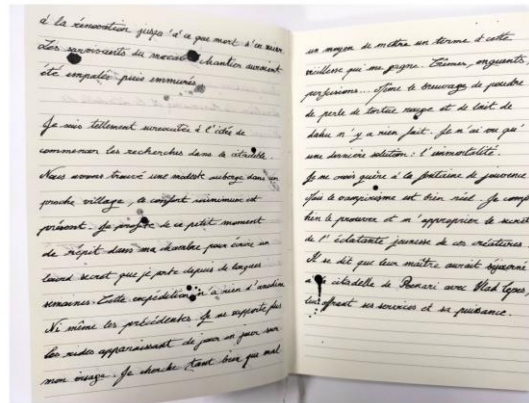 à la rénovation jusqu'à ce que mort s'en suive.
Les survivants du macabre chantier auraient
été empalés puis emmurés.
Je suis tellement surexcitée à l'idée de
commencer les recherches dans la citadelle.
Nous avons trouvé une modeste auberge dans un
proche village, le confort minimum est
présent. Je profite de ce petit moment
de répit dans ma chambre pour écrire un
lourd secret que je porte depuis de longues
semaines. Cette expédition n'a rien d'anodine
Ni même les précédentes. Je ne supporte plus
les rides apparaissant de jour en jour sur
mon visage. Je cherche tant bien que mal
un moyen de mettre un terme à cette
vieillesse qui me gagne. Crèmes, onguents,
perfusions... Même le breuvage de poudre
de perle de tortue nacrée et de lait de
dahu n'y a rien fait. Je n'ai vu qu'
une dernière solution : l'immortalité.
Je ne crois guère à la fontaine de jouvence
mais le vampirisme est bien réel. Je compte
bien le prouver et m'approprier le secret
de l'éclatante jeunesse de ces créatures.
Il se dit que leur maître aurait séjourné
à la citadelle de Poenari avec Vlad Tepes,
lui offrant ses services et sa puissance.